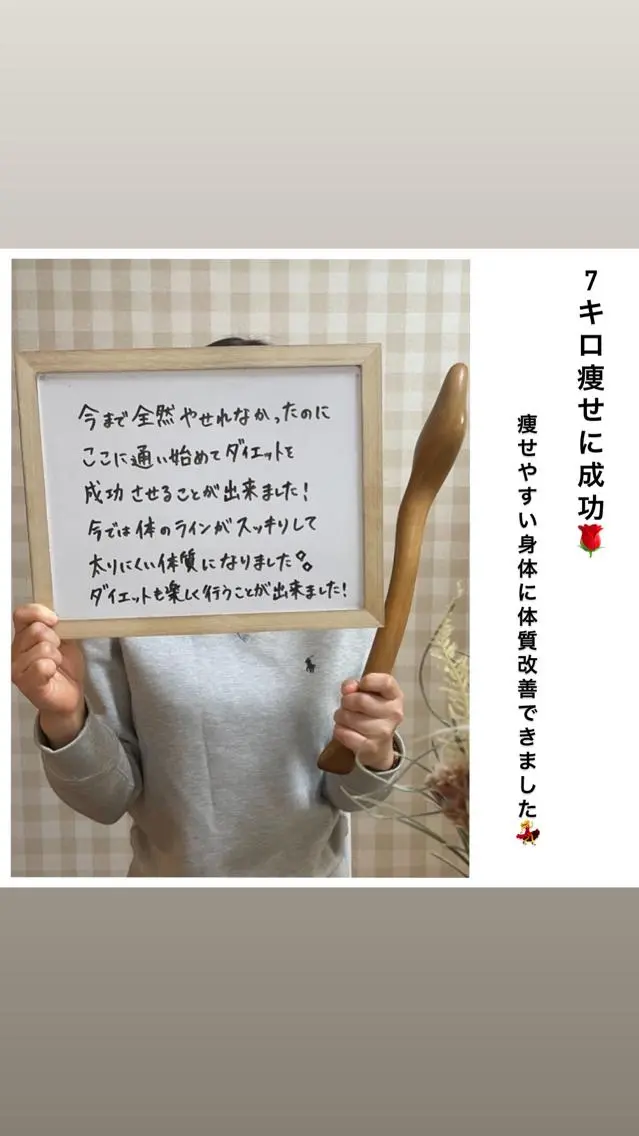 7キロ痩せに成功🌹
痩せやすい身体に体質改善できました💃
今まで全然やせれなかったのに
ここに通い始めてダイエットを
成功させることが出来ました!
今では体のラインがスッキリして
太りにくい体質になりました。
ダイエットも楽しく行うことが出来ました!